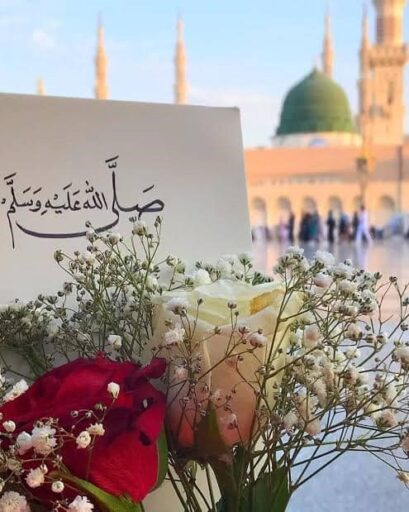 صَلَّى اللّٰه عَلَيْهِ وَسَلَّمَ